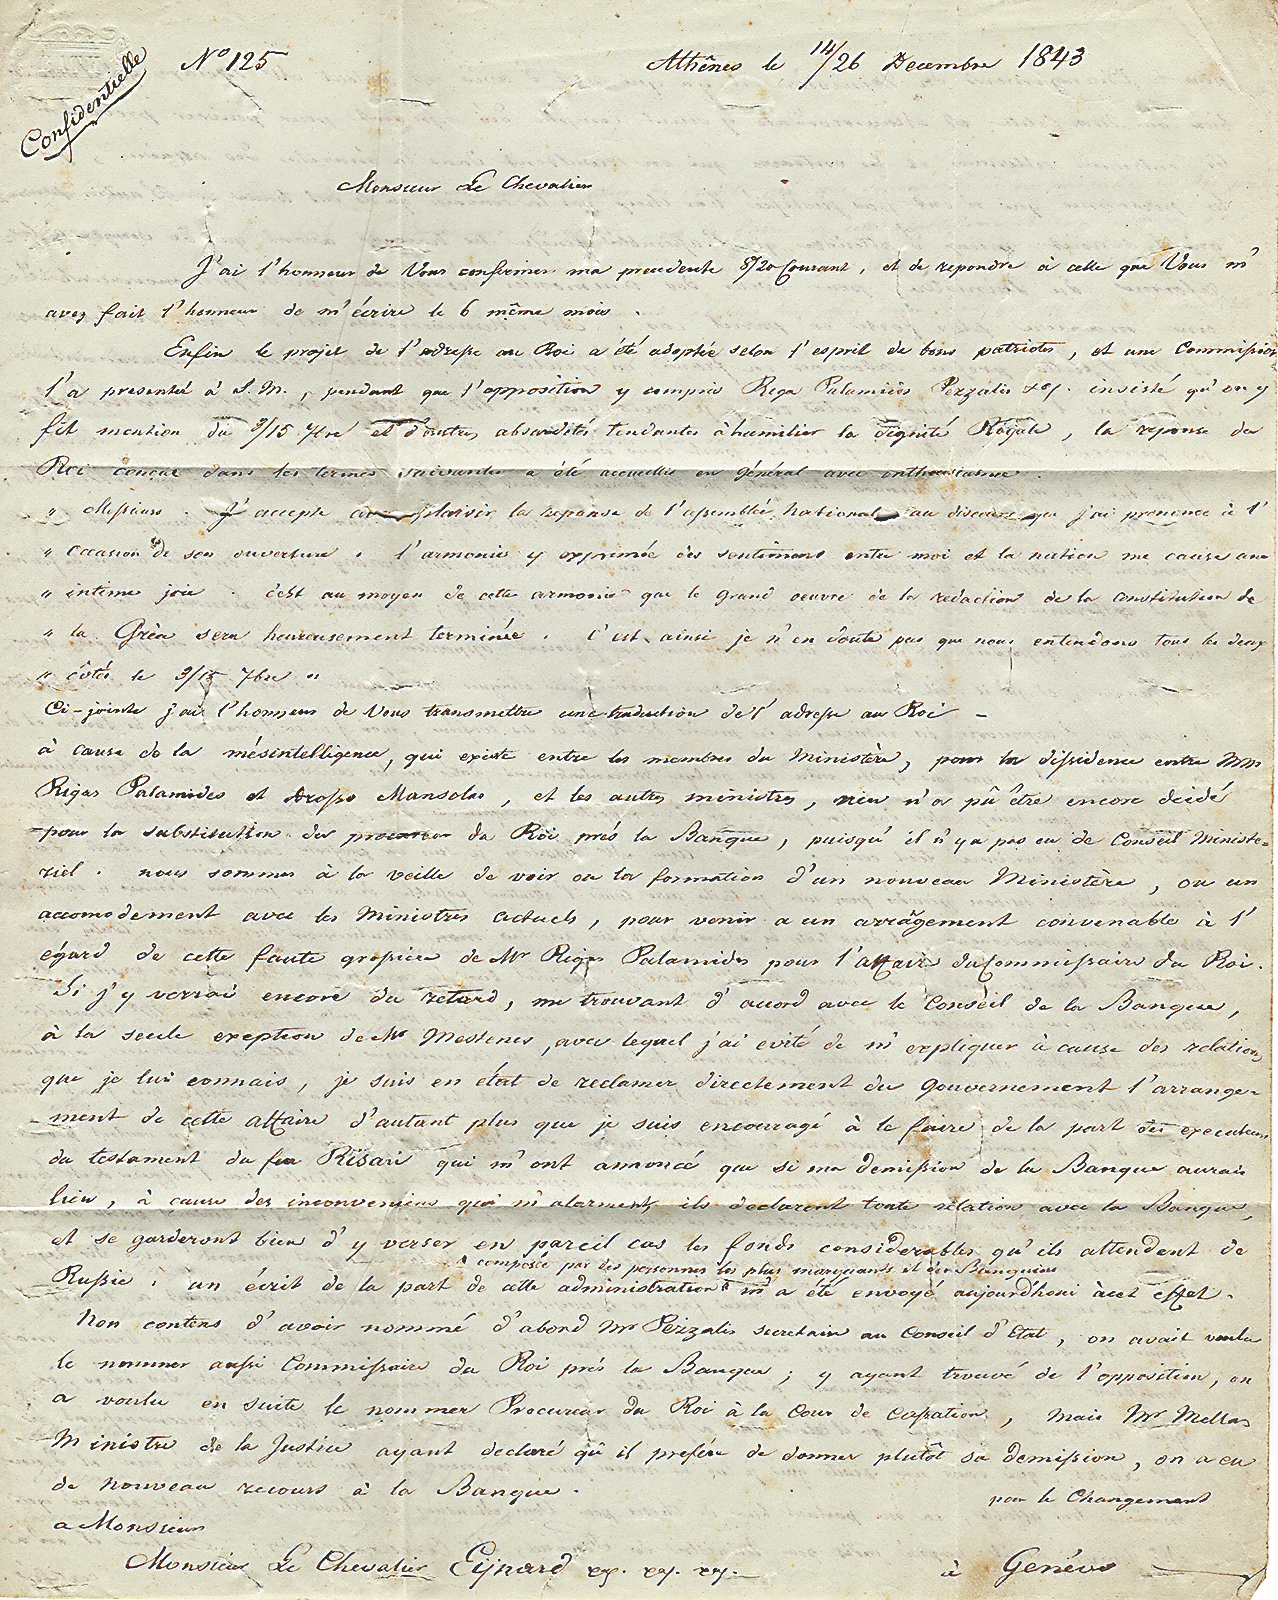 Confidentielle
Nº 125
Athênes le 14/26 Decembre 1843
Monsieur Le Chevalier
J'ai l'honneur de Vous confirmer ma precedente 8/20 Courant, et de repondre à celle que Vous m'
avez fait l'honneur de m'écrire le 6 même mois.
Enfin le projet de l'adresse au Roi a été adoptée selon l'esprit de bons patriotes, et une Commission
l'a presenté à S. M., pendant que l'opposition y compris Riga Palamidès Pezzalis insisté qu'on y
fit mention du 3/15 7bre et d'autres absurdités tendantes à humilier la dignité Royale, la reponse du
Roi conçue dans les termes suivantes a été accueillie en général avec enthousiasme.
" Messieurs. J'accepte avec plaisir la reponse de l'assemblée National au discours que j'ai prononcé à l'
" occasion de son ouverture. l'armonie y exprimée des sentimens entre moi et la nation me cause une
" intime joie. c'est au moyen de cette armonie que le grand oeuvre de la redaction de la constitution de
" la Grèce sera heureusement terminée. C'est ainsi je n'en doute pas que nous entendons tous les deux
" côtés le 3/15 7bre "
Ci-jointe j'ai l'honneur de Vous transmettre une traduction de l'adresse au Roi –
à cause de la mésintelligence, qui existe entre les membres du Ministère, pour la dissidence entre Mrs
Rigas Palamides et Drosso Mansolas, et les autres ministres, rien n'a pû être encore decidé
pour la substitution du procureur du Roi près la Banque, puisqu'il n'y a pas eu de Conseil Ministe=
riel. nous sommes à la veille de voir ou la formation d'un nouveau Ministère, ou un
accomodement avec les Ministres actuels, pour venir a un arrâgement convenable à l'
égard de cette faute grossière de Mr Rigas Palamides pour l'affaire du Commissaire du Roi.
Si j'y verrai encore du retard, me trouvant d'accord avec le Conseil de la Banque,
à la seule exeption de Mr Mestenes, avec lequel j'ai evité de m'expliquer à cause des relations
que je lui connais, je suis en état de reclamer directement du Gouvernement l'arrange=
ment de cette affaire d'autant plus que je suis encouragé à le faire de la part des executeurs
du testament du feu Risari qui m'ont annoncé que si ma demission de la Banque aurais
lieu, à cause des inconveniens qui m'alarment, ils declarent toute relation avec la Banque,
et se garderont bien d'y verser en pareil cas les fonds considerables qu'ils attendent de
composée par des personnes les plus marquants et des Banquiers
Russie. un écrit de la part de cette administration m'a été envoyé aujourd'houi à cet effet.
Non contens d'avoir nommé d'abord Mr Pezzalis secretaire au Conseil d'Etat, on avait voulu
le nommer aussi Commissaire du Roi près la Banque; y ayant trouvé de l'opposition, on
a voulu en suite le nommer Procureur du Roi à la Cour de Cassation, mais Mr Mellas
Ministre de la Justice ayant declaré qu'il prefère de donner plutôt sa demission, on a eu
de nouveau recours à la Banque.
pour le Changement
a Monsieur
Monsieur Le Chevalier Eijnard à Genéve